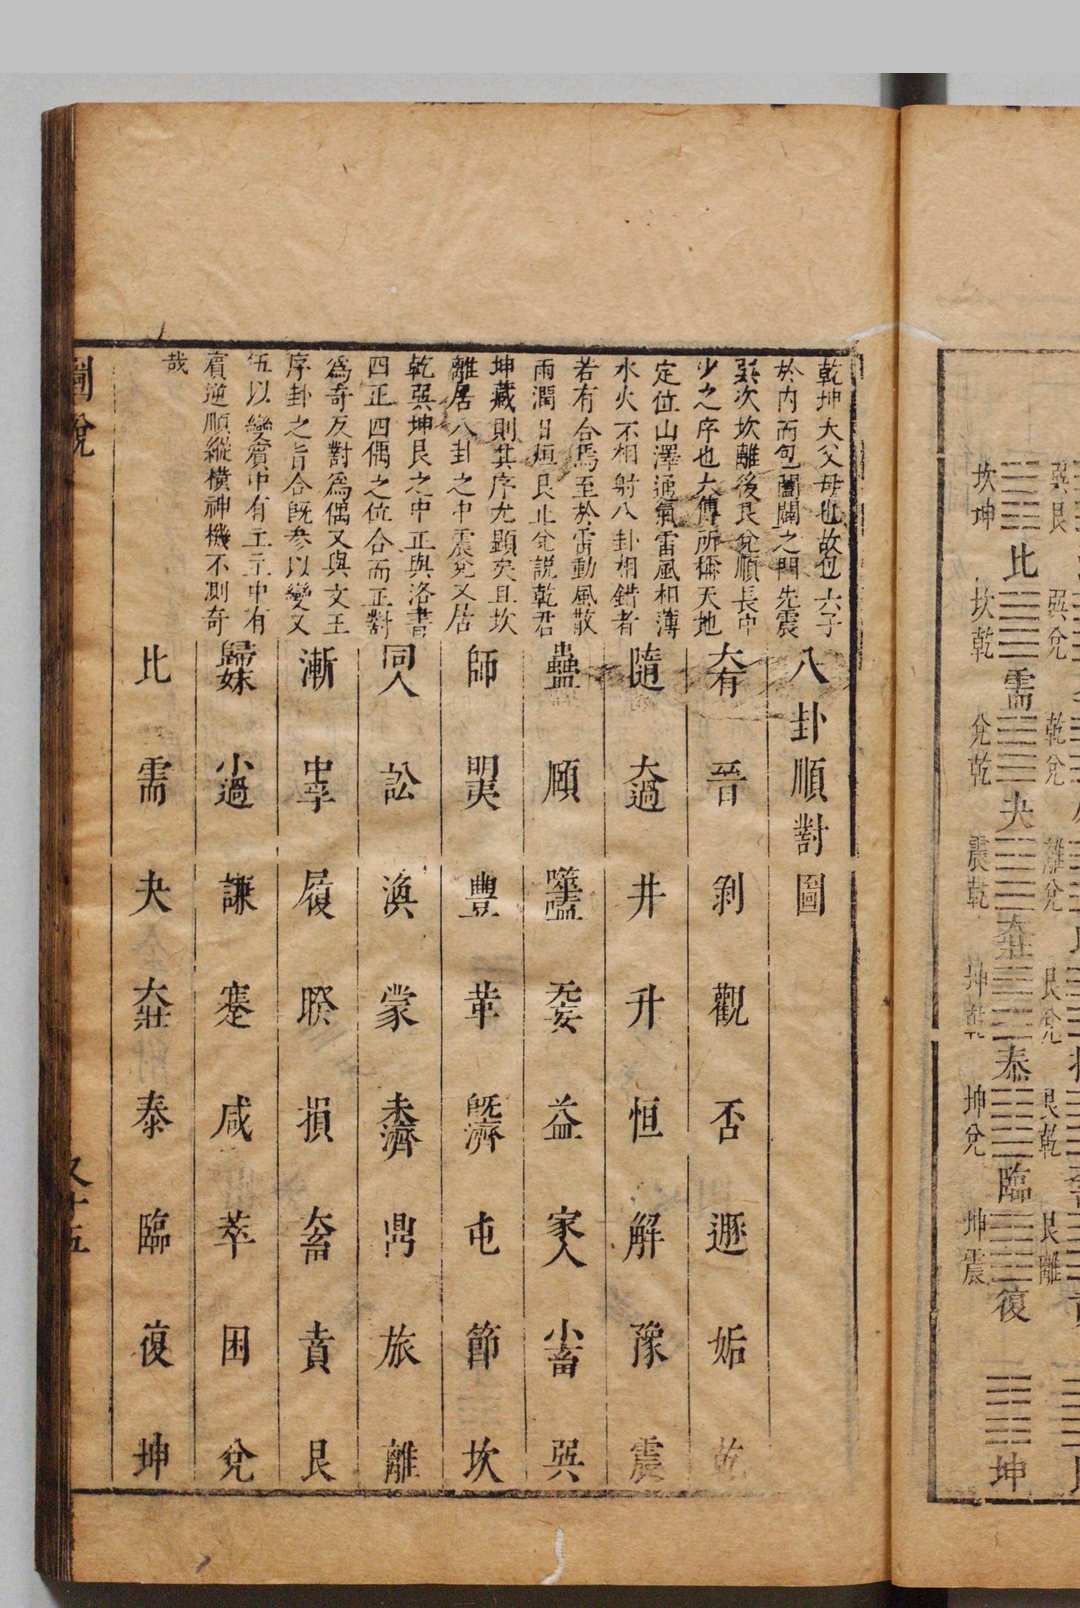 巽艮
巽兌
乾兌
離兌
艮兌
艮乾
艮離
坎坤
比
坎乾
需
兌乾
夬
震乾
大壯
坤乾
泰
坤兌
臨
坤震
復
坤
乾坤大父母也故包六子
於内而包闔闢之門先震
巽次坎離後艮兌順長中
少之序也大傳所稱天地
定位山澤通氣雷風相薄
水火不相射八卦相錯者
若有合焉至於雷動風散
雨潤日烜艮止兌説乾君
坤藏則其序尤顯矣且坎
離居八卦之中震兌又居
乾巽坤艮之中正與洛書
四正四偶之位合而正對
爲奇反對爲偶又與文王
序卦之旨合既參以變又
伍以變賓中有主主中有
賓逆順縱橫神機不測奇
哉
八卦順對圖
大有 晉 剝 觀 否 遯 姤 乾
隨 大過 井 升 恒 解 豫 震
蠱 頤 噬嗑 无妄 益 家人 小畜 巽
師 明夷 豐 革 既濟 屯 節 坎
同人 訟 渙 蒙 未濟 鼎 旅 離
漸 中孚 履 睽 損 大畜 賁 艮
歸妹 小過 謙 蹇 咸 萃 困 兌
比 需 夬 大壯 泰 臨 復 坤
圖說
又十五